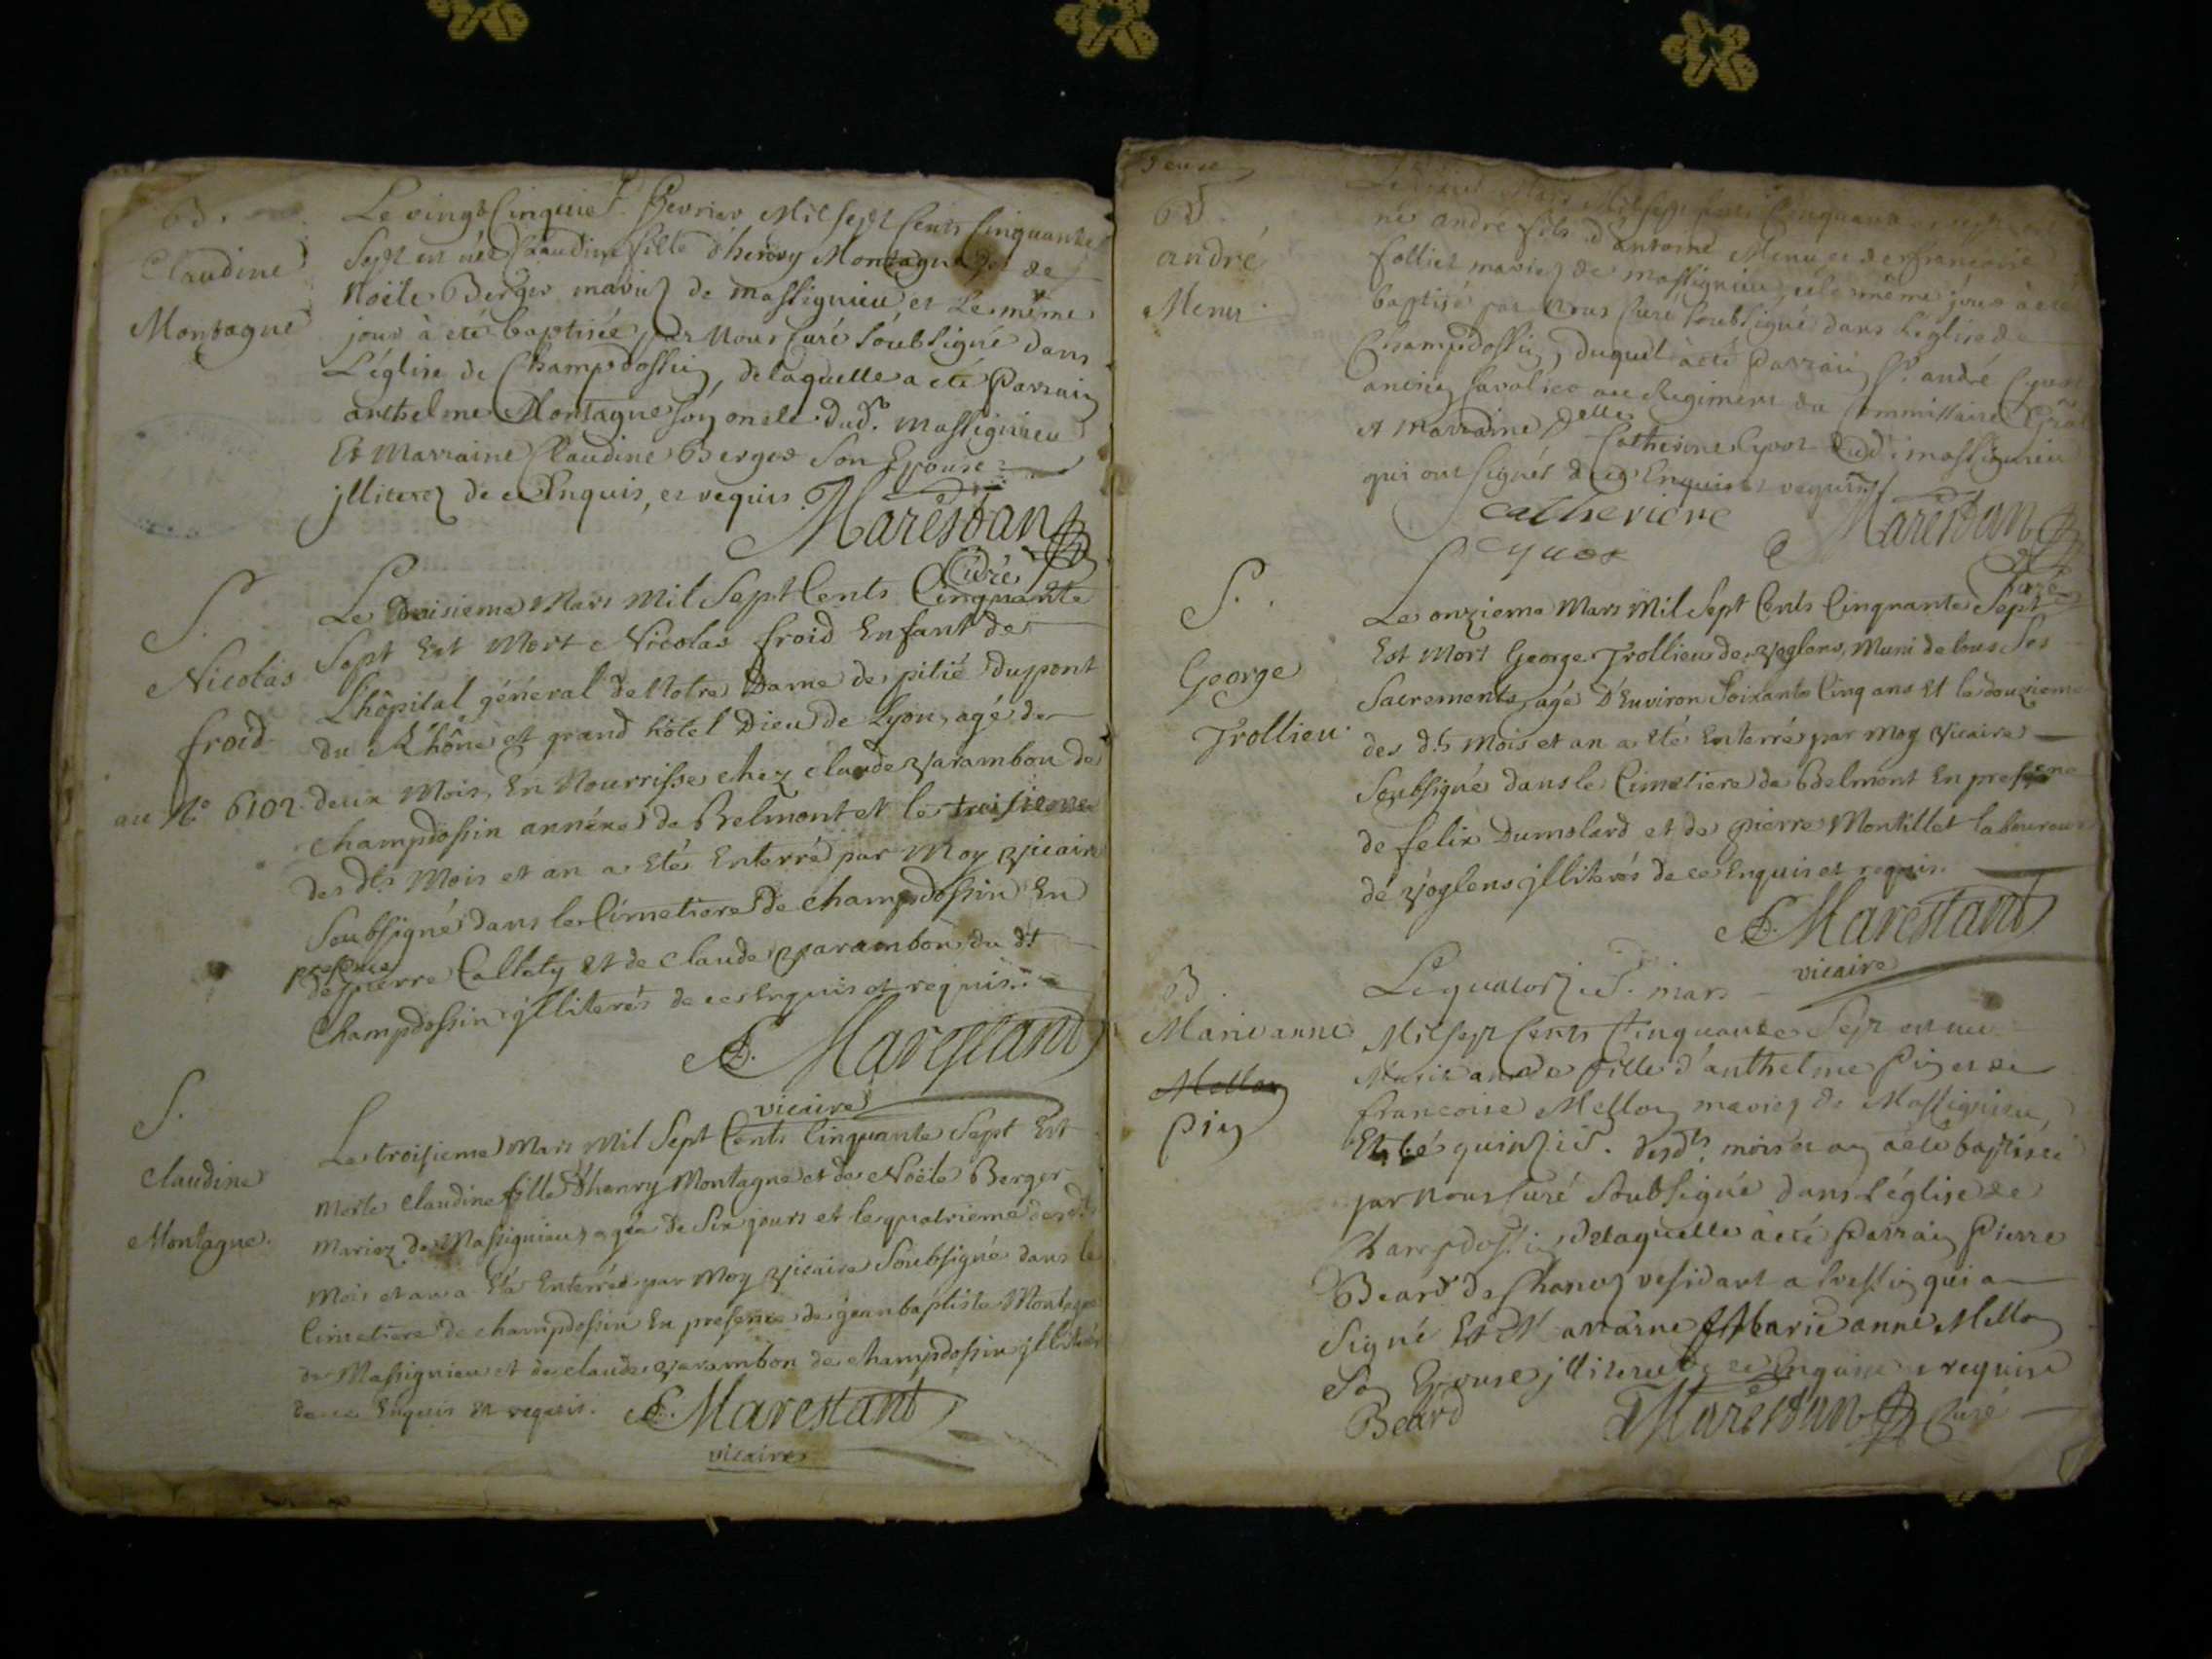 B.
Claudine
Montagne
Le vingt Cinquie. fevrier Mil Sept Cents Cinquante
Sept est née Claudine fille d'henry Montagne et de
Noële Berger mariez de massignieu, et Le même
jour à eté baptisée par Nous Curé Soubsigné dans
L'église de Champdossin, delaquelle a eté Parrain
anthelme Montagne son oncle dud. massignieu
Et Marraine Claudine Berger Son Epouse
jlliterez de ce Enquis, et requis.
Marestan
Curé
S.
Nicolas
froid
au No 6102
Le troisieme Mars Mil Sept Cents Cinquante
Sept Est Mort Nicolas froid Enfant de
L'hôpital général de Notre Dame de pitié du pont
du Rhône et grand hôtel Dieu de Lyon, agé de
deux Mois, En Nourrisse chez claude Varambon de
champdossin annéxe de Belmont et le troisieme
des dts Mois et an a Eté Enterré par Moy Vicaire
Soubsigné dans le Cimetiere de champdossin En
presence
de pierre Callety et de Claude Varambon du dt
Champdossin jlliterés de ce Enquis et requis.
Marestant
vicaire
S.
Claudine
Montagne.
Le troisieme Mars Mil Sept Cents Cinquante Sept Est
Morte Claudine fille D'henry Montagne et de Noële Berger
Mariez de Massignieu, agée de Six jours et le quatrieme des dts
Mois et an a Eté Enterrée par Moy Vicaire Soubsigné dans le
Cimetiere de champdossin En presence de jean baptiste Montagne
de Massignieu et de claude Varambon de champdossin jlliterés
de ce Enquis et requis.
Marestant
vicaire
B.
andré
Menu
Mars Mil Sept Cents Cinquante et sept est
né andré fils d'antoine Menu et de francoise
folliet mariez de massignieu, et le même jour à eté
baptisé par Nous Curé Soubsigné dans L'église de
Champdossin, duquel à eté Parrain Sr. andré Cyvoct
ancien Cavalier au Regiment du Commissaire
et marraine Delle Catherine Cyvoct dud. massignieu
qui ont signés de ce Enquis et requis
Catherine
Cyvoct
Marestan
Curé
S.
George
Trollieu.
Le onzieme Mars Mil Sept Cents Cinquante Sept
Est Mort George Trollieu de Voglens, Muni de tous Ses
Sacrements, agé D'Environ Soixante Cinq ans Et le douzieme
des dts Mois et an a Eté Enterré par Moy Vicaire
Soubsigné dans le Cimetiere de Belmont En presence
de felix Dumolard et de pierre Montillet laboureur
de Voglens jlliterés de ce Enquis et requis.
Marestant
vicaire
B.
Marie anne
Mellon
Pin
Le quatorzie. mars
Mil Sept Cents Cinquante Sept est née
Marie anne fille d'anthelme Pin et de
francoise Mellon mariez de Massignieu,
Et le quinzie. desdts mois et an à eté baptisée
par nous Curé Soubsigné dans L'église de
Champdossin delaquelle à eté Parrain Pierre
Beard de Chanaz residant a Cressin qui a
signé Et Maraine Marie anne Mellon
Son Epouse jlliterée de ce Enquise et requise
Beard
Marestan Curé